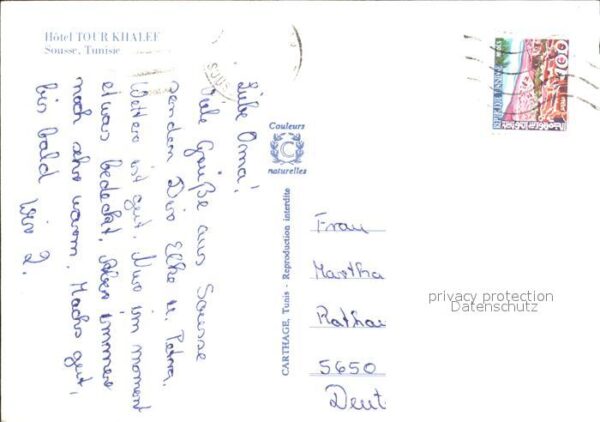 Hôtel TOUR KHALEF
Sousse, Tunisie
Liebe Oma!
Viele Grüße aus Sousse
senden Dir Elke u. Petra.
Wetter ist gut. Nur im moment
etwas bedeckt. Aber immer
noch sehr warm. Machs gut,
bis bald Wir 2.
Couleurs
C
naturelles
CARTHAGE, Tunis - Reproduction interdite
Frau
Martha
Rathau
5650
Deut
privacy protection
Datenschutz